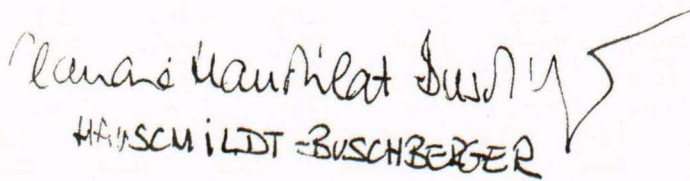 Claudia Hauschildt-Buschberger
HAUSCHILDT-BUSCHBERGER